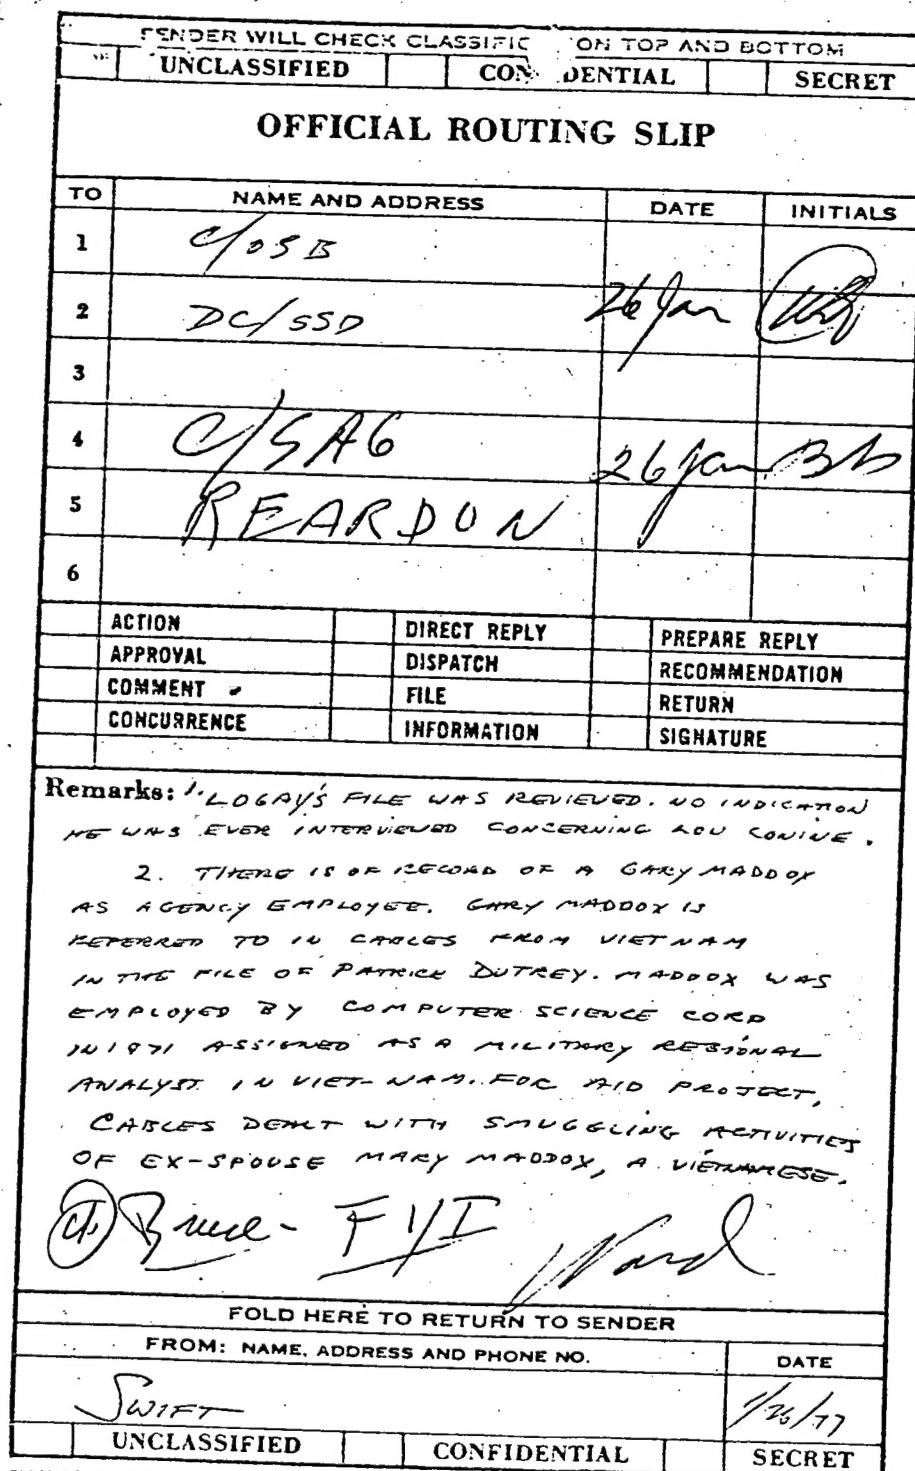 SENDER WILL CHECK CLASSIFIC ON TOP AND BOTTOM
UNCLASSIFIED CON DENTIAL SECRET
OFFICIAL ROUTING SLIP
TO NAME AND ADDRESS DATE INITIALS
1 C/OSB
2 DC/SSD 26 Jan
3
4 C/SAG 26 Jan
5 REARDON
6
ACTION DIRECT REPLY PREPARE REPLY
APPROVAL DISPATCH RECOMMENDATION
COMMENT FILE RETURN
CONCURRENCE INFORMATION SIGNATURE
Remarks: 1. LOGAY'S FILE WAS REVIEWED. NO INDICATION
HE WAS EVER INTERVIEWED CONCERNING LOU CONINE.
2. THERE IS OF RECORD OF A GARY MADDOX
AS AGENCY EMPLOYEE. GARY MADDOX IS
REFERRED TO IN CABLES FROM VIETNAM
IN THE FILE OF PATRICK DUTREY. MADDOX WAS
EMPLOYED BY COMPUTER SCIENCE CORP
IN 1971 ASSIGNED AS A MILITARY REGIONAL
ANALYST IN VIET-NAM. FOR AID PROJECT,
CABLES DEALT WITH SMUGGLING ACTIVITIES
OF EX-SPOUSE MARY MADDOX, A VIETNAMESE.
Bruce - FYI Ward
FOLD HERE TO RETURN TO SENDER
FROM: NAME, ADDRESS AND PHONE NO. DATE
SWIFT 1/26/77
UNCLASSIFIED CONFIDENTIAL SECRET